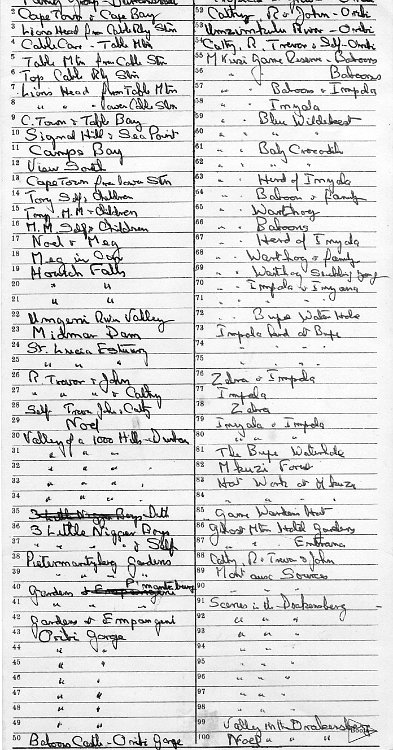 Cape Town & Cape Bay
3 Lions Head from Cable Rly Stn
4 Cable Car - Table Mtn
5 Table Mtn from Cable Stn
6 Top Cable Rly Stn
7 Lions Head from Table Mtn
8 " " " lower Cable Stn
9 C. Town & Table Bay
10 Signal Hill & Sea Point
11 Camps Bay
12 View South
13 Cape Town from lower Stn
14 Tony Self & Children
15 Tony, M.M & Children
16 M.M. Self & Children
17 Noel & Meg
18 Meg in Cap
19 Howick Falls
20 " "
21 " "
22 Umgeni River Valley
23 Midmar Dam
24 St. Lucia Estuary
25 " "
26 R. Trevor & John
27 " " " & Cathy
28 Self Trevor John, Cathy
29 Noel
30 Valley of a 1000 Hills - Durban
31 " " "
32 " " "
33 " " "
34 " " "
35 3 Little Nigger Boys - Ditto
36 3 Little Nigger Boys
37 " " " & Self
38 Pietermaritzburg Gardens
39 " "
40 Gardens Pmaritzburg
41 " "
42 Gardens at Empangeni
43 Oribi Gorge
44 " "
45 " "
46 " "
47 " "
48 " "
49 " "
50 Baboons Castle - Oribi Gorge
52 Cathy R & John - Oribi
53 Umzimkulu River - Oribi
54 Cathy, R. Trevor & Self - Oribi
55 Mkuzi Game Reserve - Baboons
56 " " Baboons
57 " " Baboon & Impala
58 " " Inyala
59 " " Blue Wildebeest
60 " " "
61 " " Baby Crocodile
62 " " "
63 " " Herd of Inyala
64 " " Baboon & family
65 " " Warthog
66 " " Baboons
67 " " Herd of Inyala
68 " " Warthog & family
69 " " Warthog Suckling young
70 " " Impala & Inyala
71 " "
72 " " Bube Water Hole
73 Impala herd at Bube
74 " " "
75 " " "
76 Zebra & Impala
77 Impala
78 Zebra
79 Inyala & Impala
80 " " "
81 The Bube Waterhole
82 Mkuzi Forest
83 Hot Work at Mkuze
84 " " "
85 Game Wardens Hut
86 Ghost Mtn Hotel Gardens
87 " " " Entrance
88 Cathy, R. Trevor & John
89 Mont aux Sources
90 " " "
91 Scenes in the Drakensberg
92 " " "
93 " " "
94 " " "
95 " " "
96 " " "
97 " " "
98 " " "
99 Valley in the Drakensberg
100 Noel " " "